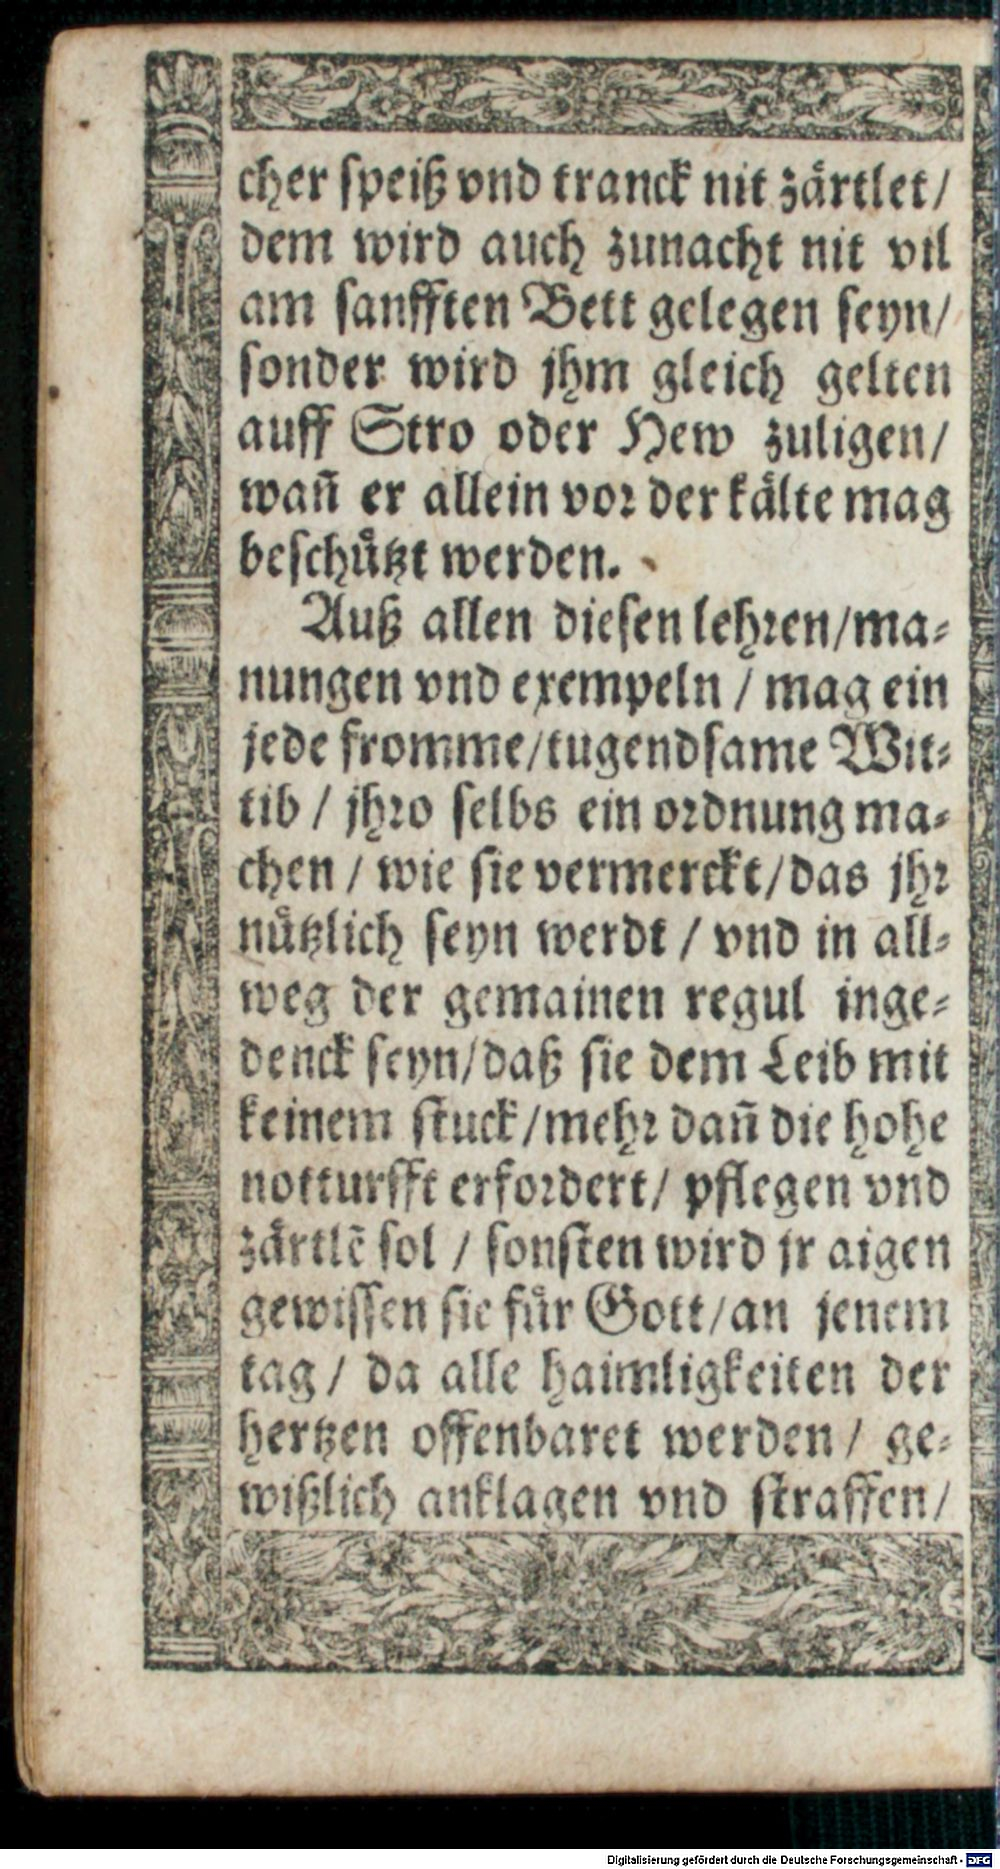 cher speiß vnd tranck nit zärtlet/
dem wird auch zunacht nit vil
am sanfften Bett gelegen seyn/
sonder wird jhm gleich gelten
auff Stro oder Hew zuligen/
wañ er allein vor der kälte mag
beschützt werden.
Auß allen diesen lehren/ma-
nungen vnd exempeln / mag ein
jede fromme/tugendsame Wit-
tib / jhro selbs ein ordnung ma-
chen / wie sie vermerckt/das jhr
nützlich seyn werdt / vnd in all-
weg der gemainen regul inge-
denck seyn/daß sie dem Leib mit
keinem stuck/mehr dañ die hohe
notturfft erfordert/ pflegen vnd
zärtlẽ sol / sonsten wird jr aigen
gewissen sie für Gott/an jenem
tag/ da alle haimligkeiten der
hertzen offenbaret werden/ ge-
wißlich anklagen vnd straffen/
Digitalisierung gefördert durch die Deutsche Forschungsgemeinschaft - DFG